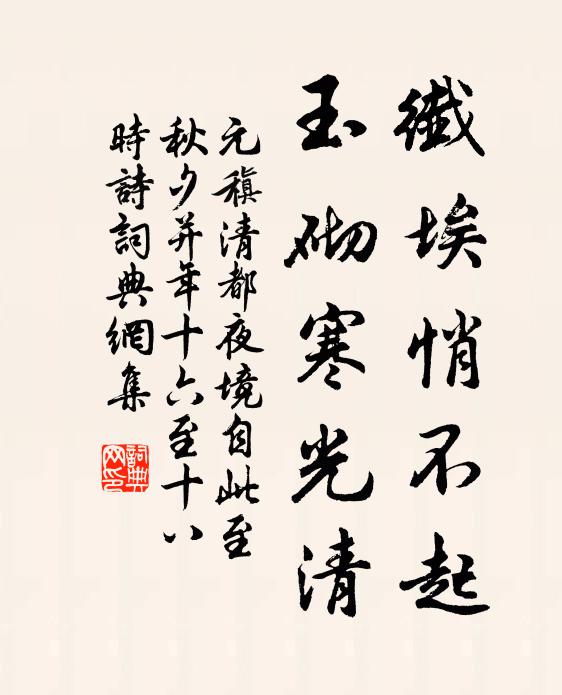 纖埃悄不起
玉砌寒光清
元稹清都夜境自此至
秋夕并年十六至十八
時詩詞典網集
詞典
网印